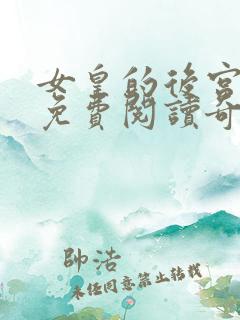 女皇的後宮
免費閱讀奇
帥浩
未经同意禁止转载